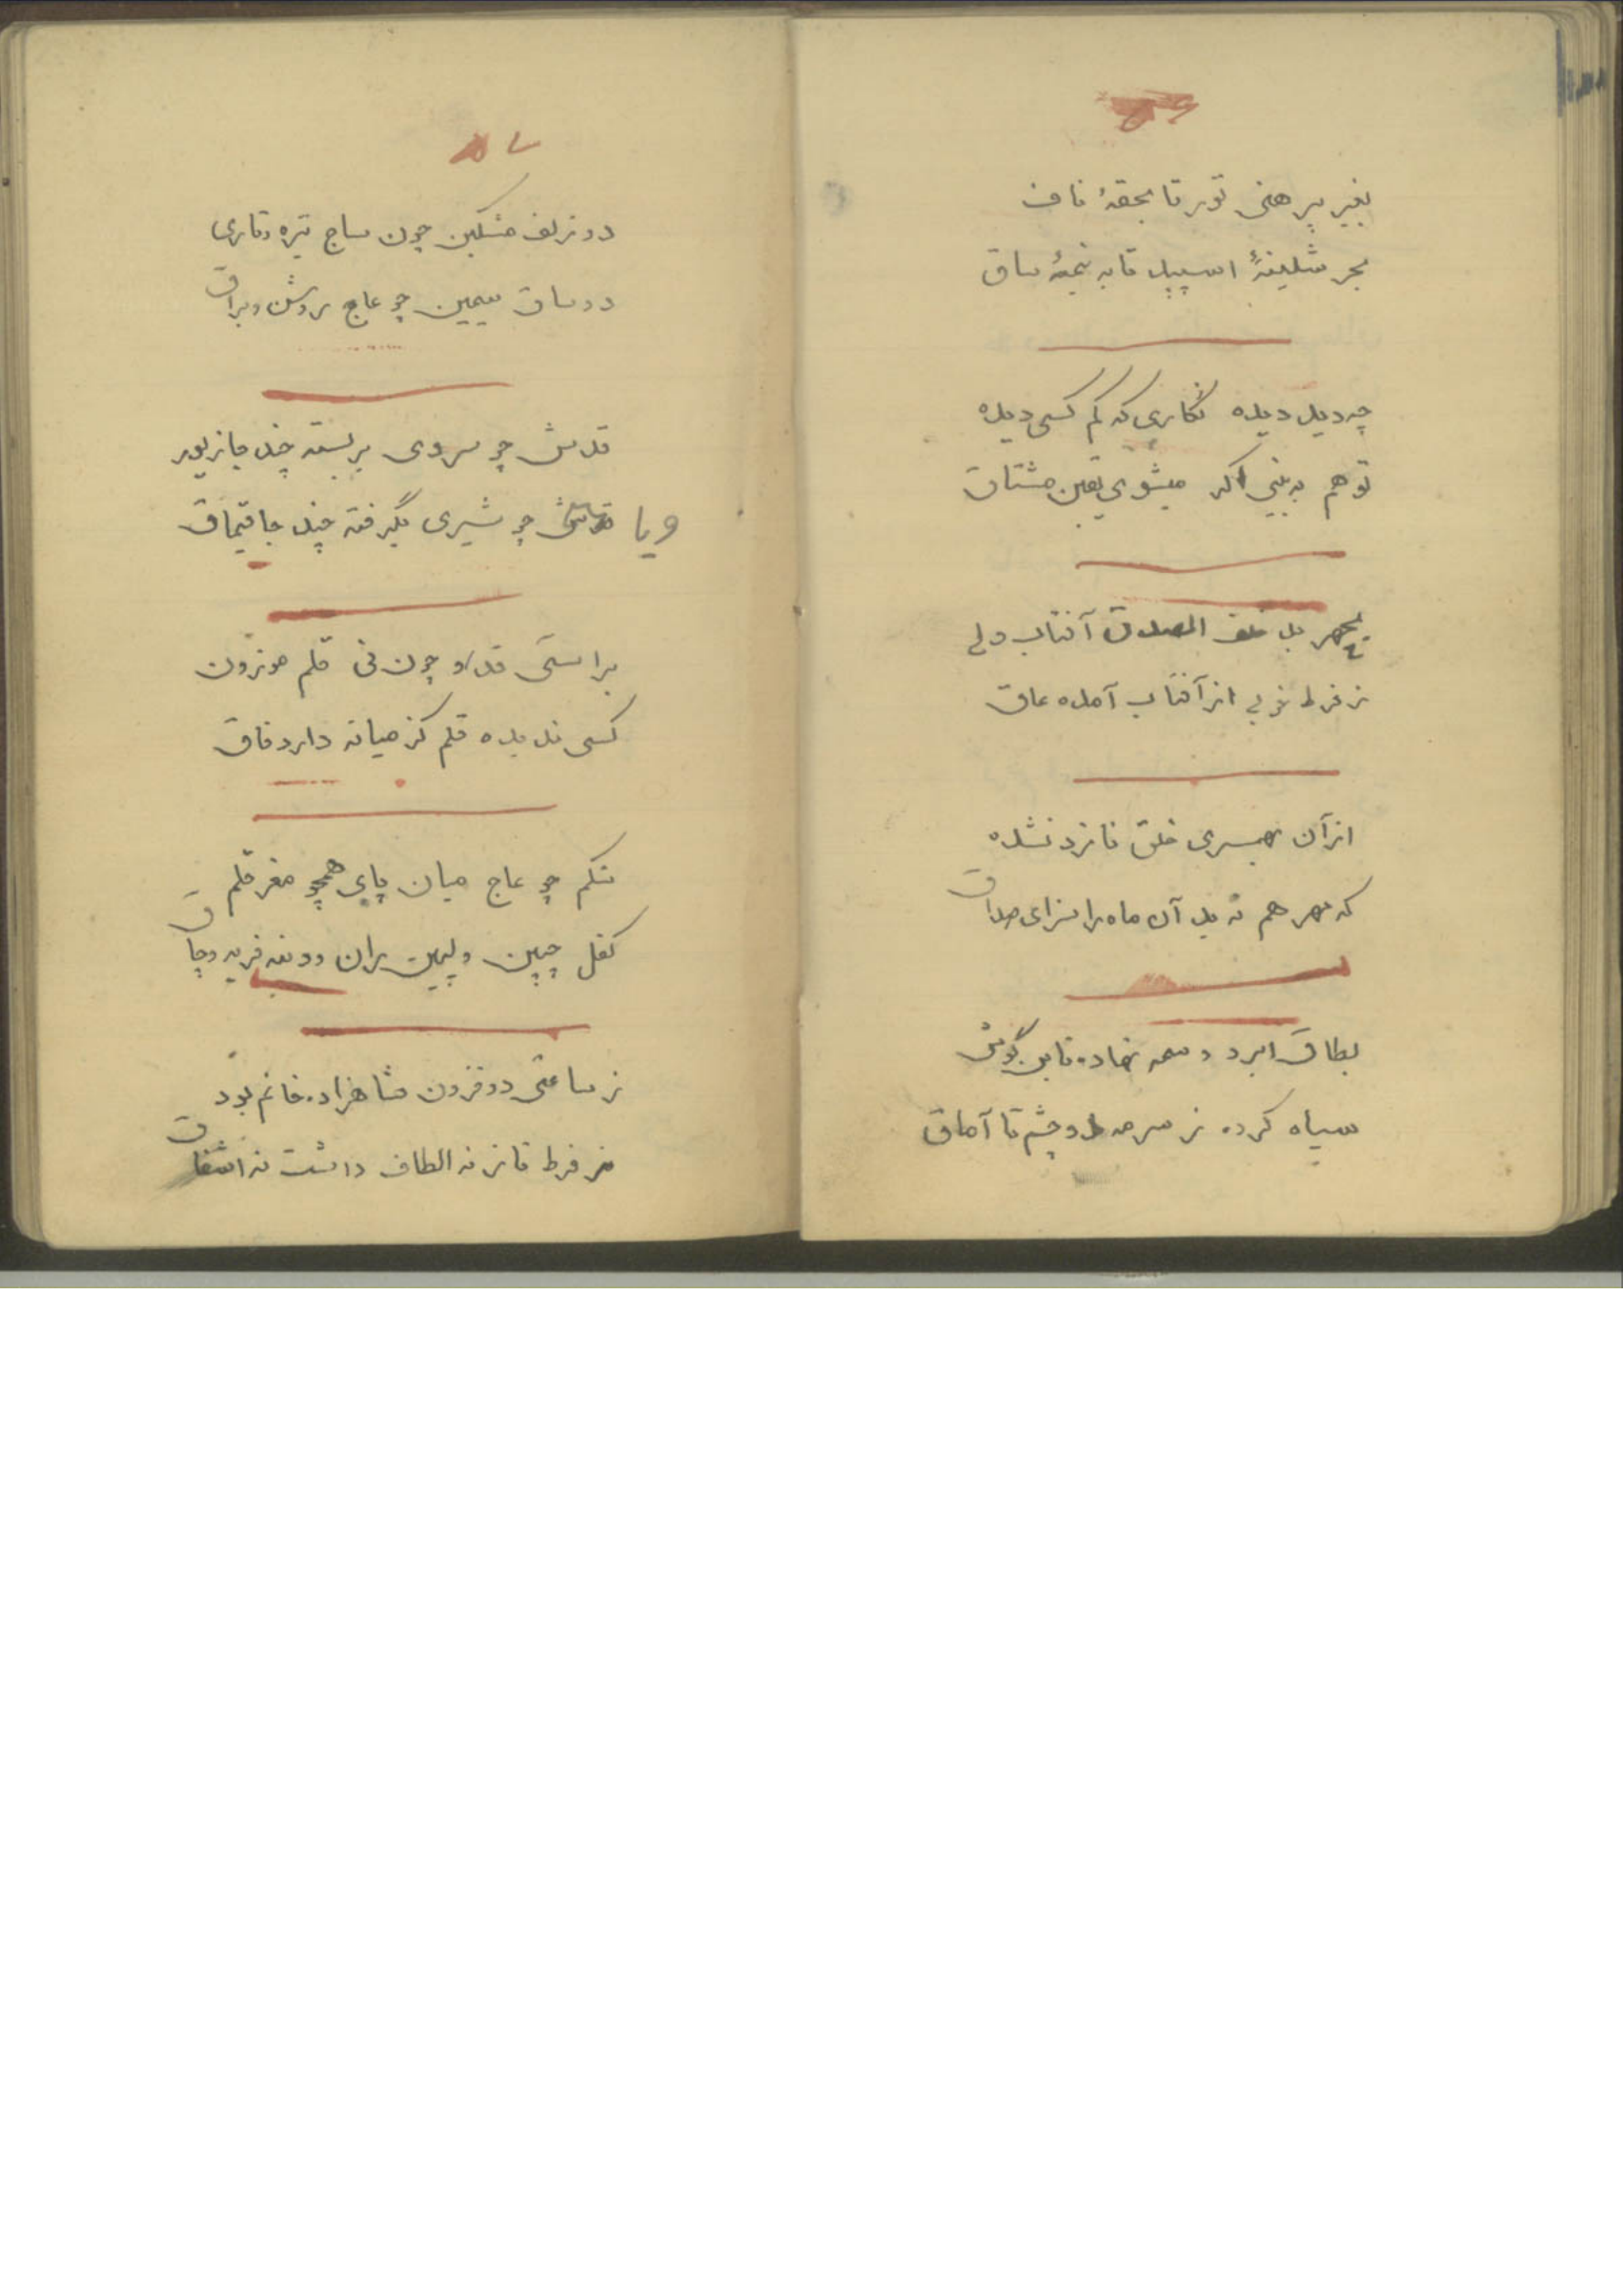 ۵۶
بغیر پیرهنی تور تا بحقهٔ ناف
بجز شلیتهٔ اسپید تا به نیمهٔ ساق
چه دید دیده نگاری که کم کسی دیده
توهم به بینی اگر میشوی یقین مشتاق
بچهر بد خلف الصدق آفتاب ولی
ز فرط خوبی از آفتاب آمده عاق
از آن بهمسری خلق نامزد نشده
که مهر هم نه بد آن ماه را سزای صداق
بطاق ابرو وسمه نهاده تا بن گوش
سیاه کرده ز سرمه دو چشم تا آماق
۵۷
دو زلف مشکین چون ساج تیره وتاری
دو ساق سیمین چو عاج روشن و براق
قدش چو سروی بر بسته چند جا زیور
و یا چو شیری بگرفته چند جا قیماق
براستی قد او چون نی قلم موزون
کسی ندیده قلم کز میانه دارد فاق
شکم چو عاج میان پای همچو مغز قلم
کفل چپین و پهین ران و دنبه فربه و چاق
ز ساعتی دو فزون شاهزاده خانم بود
ز فرط ناز نه الطاف داشت نه اشفاق